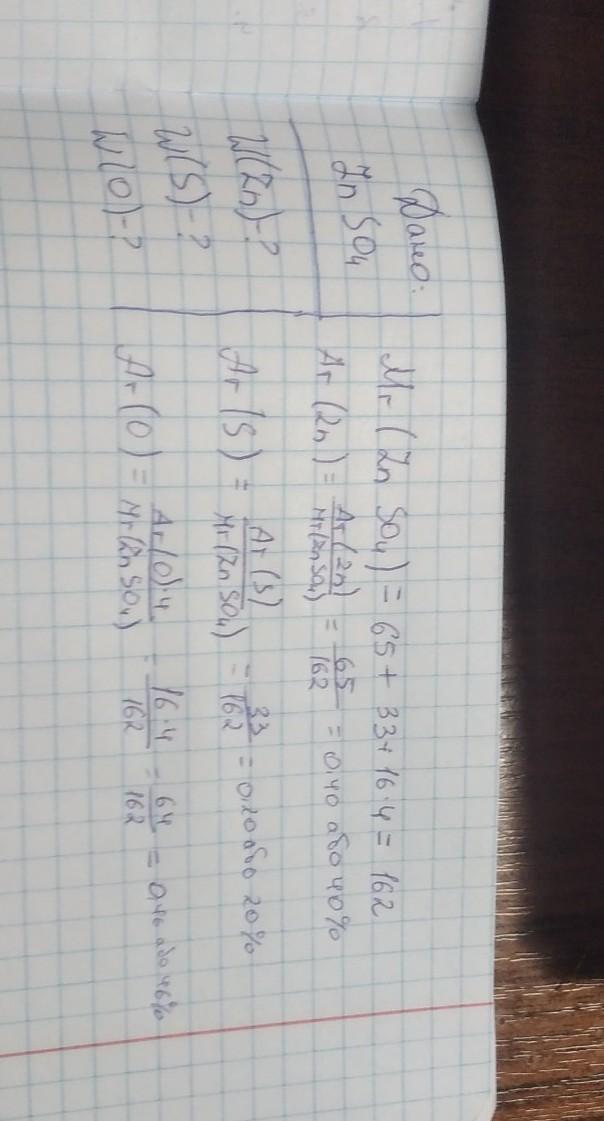 Дано:
ZnSO₄
W(Zn)-?
W(S)-?
W(O)-?
Mr (ZnSO₄) = 65 + 33 + 16·4 = 162
Ar (Zn) = Ar (Zn) / Mr (ZnSO₄) = 65/162 = 0,40 або 40%
Ar (S) = Ar (S) / Mr (ZnSO₄) = 33/162 = 0,20 або 20%
Ar (O) = Ar (O)·4 / Mr (ZnSO₄) = 16·4/162 = 64/162 = 0,46 або 46%